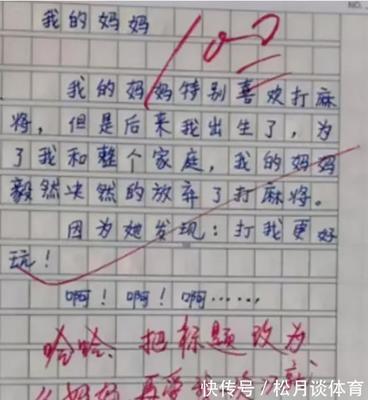 NO.
我的妈妈
100
我的妈妈特别喜欢打麻
将，但是后来我出生了，为
了我和整个家庭，我的妈妈
毅然决然的放弃了打麻将。
因为她发现：打我更好
玩！
啊！啊！啊……
哈哈、把标题改为
《妈妈
快传号 / 松月谈体育